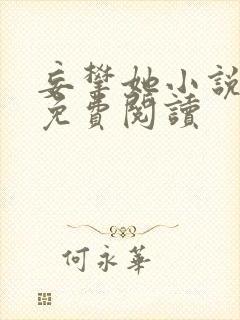 妄攀她小說
免費閱讀
何永華